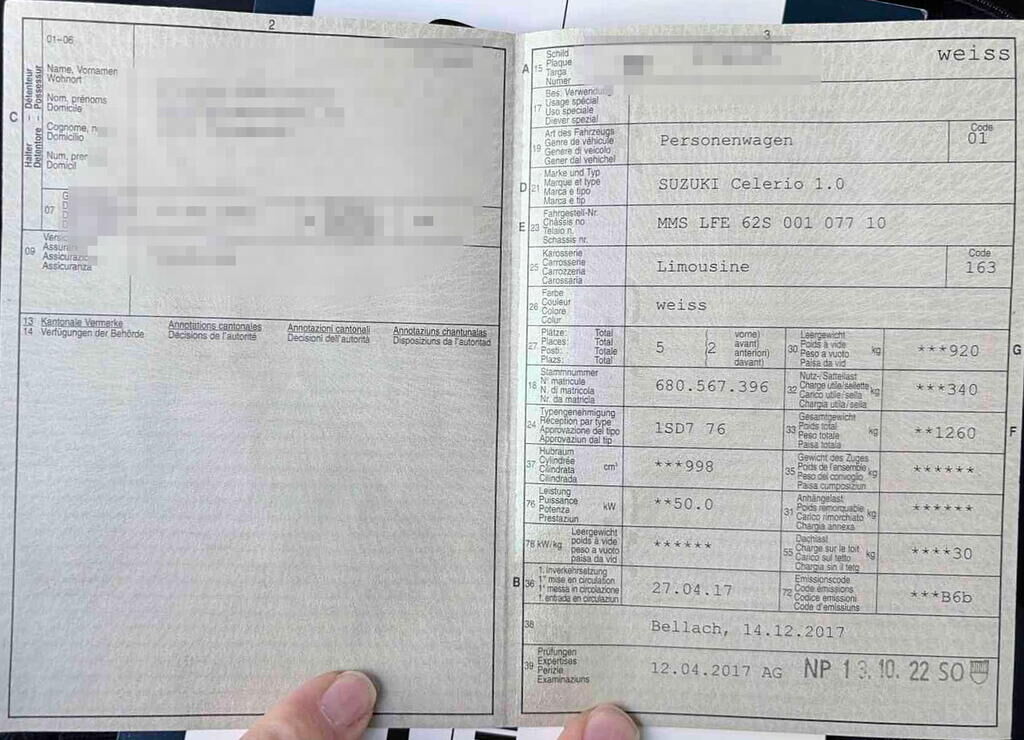 2
01-06
C
Halter - Détenteur
Detentore - Possessur
Name, Vornamen
Wohnort
Nom, prénoms
Domicile
Cognome,
Domicilio
Num,
Domicil
07
09
Assicuranza
13 Kantonale Vermerke Annotations cantonales Annotazioni cantonali Annotaziuns chantunalas
14 Verfügungen der Behörde Décisions de l'autorité Decisioni dell'autorità Disposiziuns da l'autoritad
3
A 15 Schild
Plaque
Targa
Numer
weiss
17 Bes. Verwendung
Usage spécial
Uso speciale
Diever spezial
19 Art des Fahrzeugs
Genre de véhicule
Genere di veicolo
Gener dal vehichel
Personenwagen
Code
01
D 21 Marke und Typ
Marque et type
Marca e tipo
Marca e tip
SUZUKI Celerio 1.0
E 23 Fahrgestell-Nr.
Châssis no
Telaio n.
Schassis nr.
MMS LFE 62S 001 077 10
25 Karosserie
Carrosserie
Carrozzeria
Carossaria
Limousine
Code
163
26 Farbe
Couleur
Colore
Colur
weiss
27 Plätze: Total
Places: Total
Posti: Totale
Plazs: Total
5 (2 vorne)
avant)
anteriori)
davant)
30 Leergewicht
Poids à vide
Peso a vuoto
Paisa da vid
kg
***920
G
18 Stammnummer
N° matricule
N. di matricola
Nr. da matricla
680.567.396
32 Nutz-/Sattellast
Charge utile/sellette
Carico utile/sella
Chargia utila/sella
kg
***340
24 Typengenehmigung
Réception par type
Approvazione del tipo
Approvaziun dal tip
1SD7 76
33 Gesamtgewicht
Poids total
Peso totale
Paisa totala
kg
**1260
F
37 Hubraum
Cylindrée
Cilindrata
Cilindrada
cm³
***998
35 Gewicht des Zuges
Poids de l'ensemble
Peso del convoglio
Paisa cumposiziun
kg
******
76 Leistung
Puissance
Potenza
Prestaziun
kW
**50.0
31 Anhängelast
Poids remorquable
Carico rimorchiato
Chargia annexa
kg
******
78 kW/kg Leergewicht
poids à vide
peso a vuoto
paisa da vid
******
55 Dachlast
Charge sur le toit
Carico sul tetto
Chargia sin il tetg
kg
****30
B 36 1. Inverkehrsetzung
1re mise en circulation
1a messa in circolazione
1. entrada en circulaziun
27.04.17
72 Emissionscode
Code émissions
Codice emissioni
Code d'emissiuns
***B6b
38
Bellach, 14.12.2017
39 Prüfungen
Expertises
Perizie
Examinaziuns
12.04.2017 AG NP 13.10.22 SO